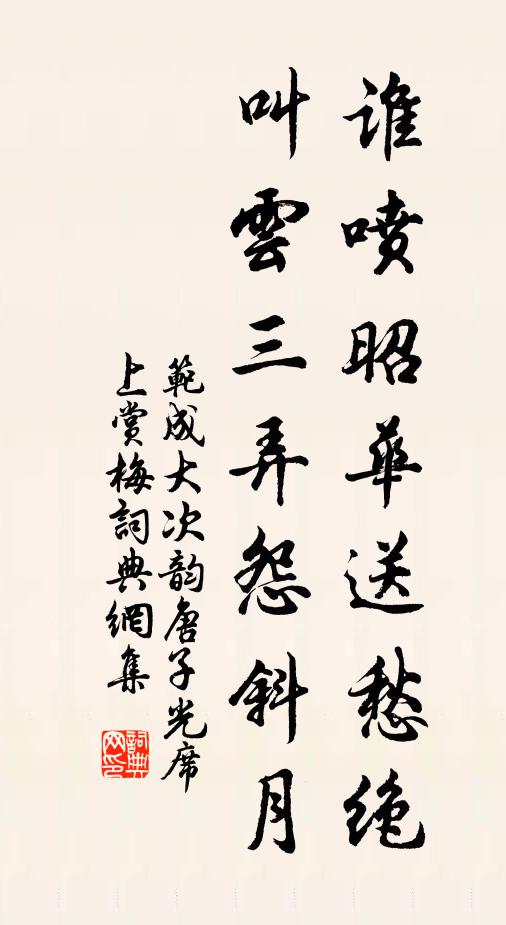 谁喷昭华送愁绝
叫雲三弄怨斜月
範成大次韵唐子光席
上赏梅詞典網集
詞典网印